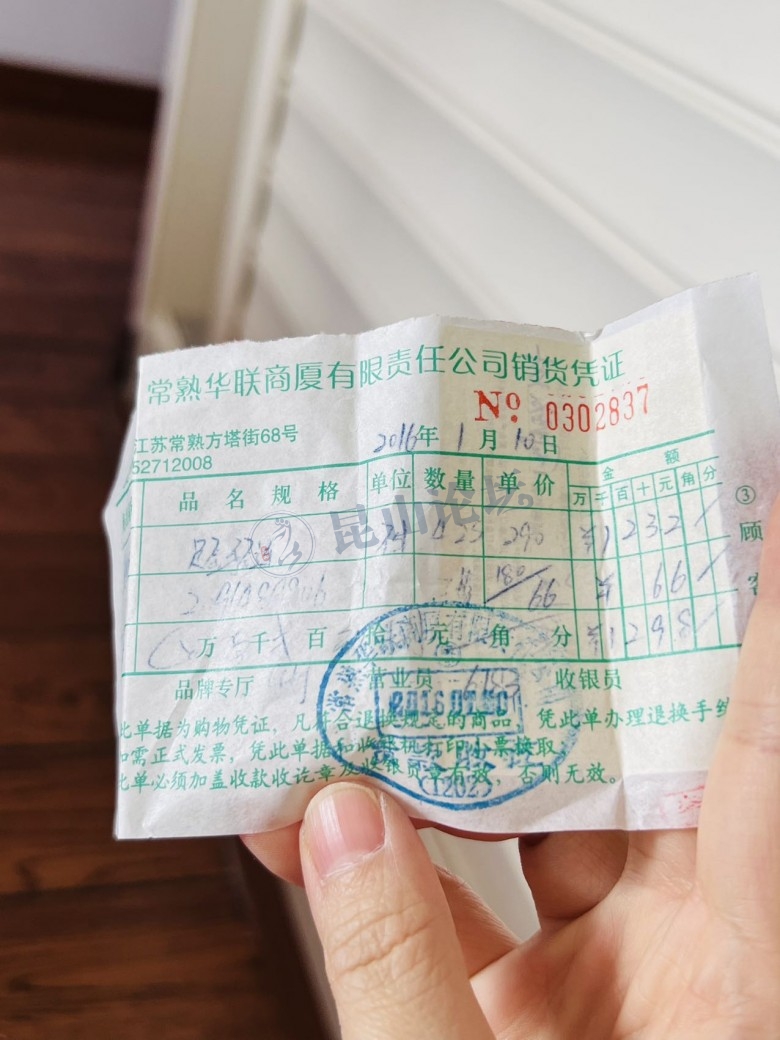 常熟华联商厦有限责任公司销货凭证
No 0302837
江苏常熟方塔街68号
2016年 1月 10日
52712008
品名规格 单位 数量 单价 金额
万千百十元角分
③
顾
290 ¥1232
180/66 ¥66
客
万 千 百 拾 元 角 分 ¥1298
品牌专厅 营业员 收银员
此单据为购物凭证，凡符合退换规定的商品，凭此单办理退换手续
如需正式发票，凭此单据和收银机打印小票换取
此单必须加盖收款收讫章及收银员章有效，否则无效。
昆山论坛